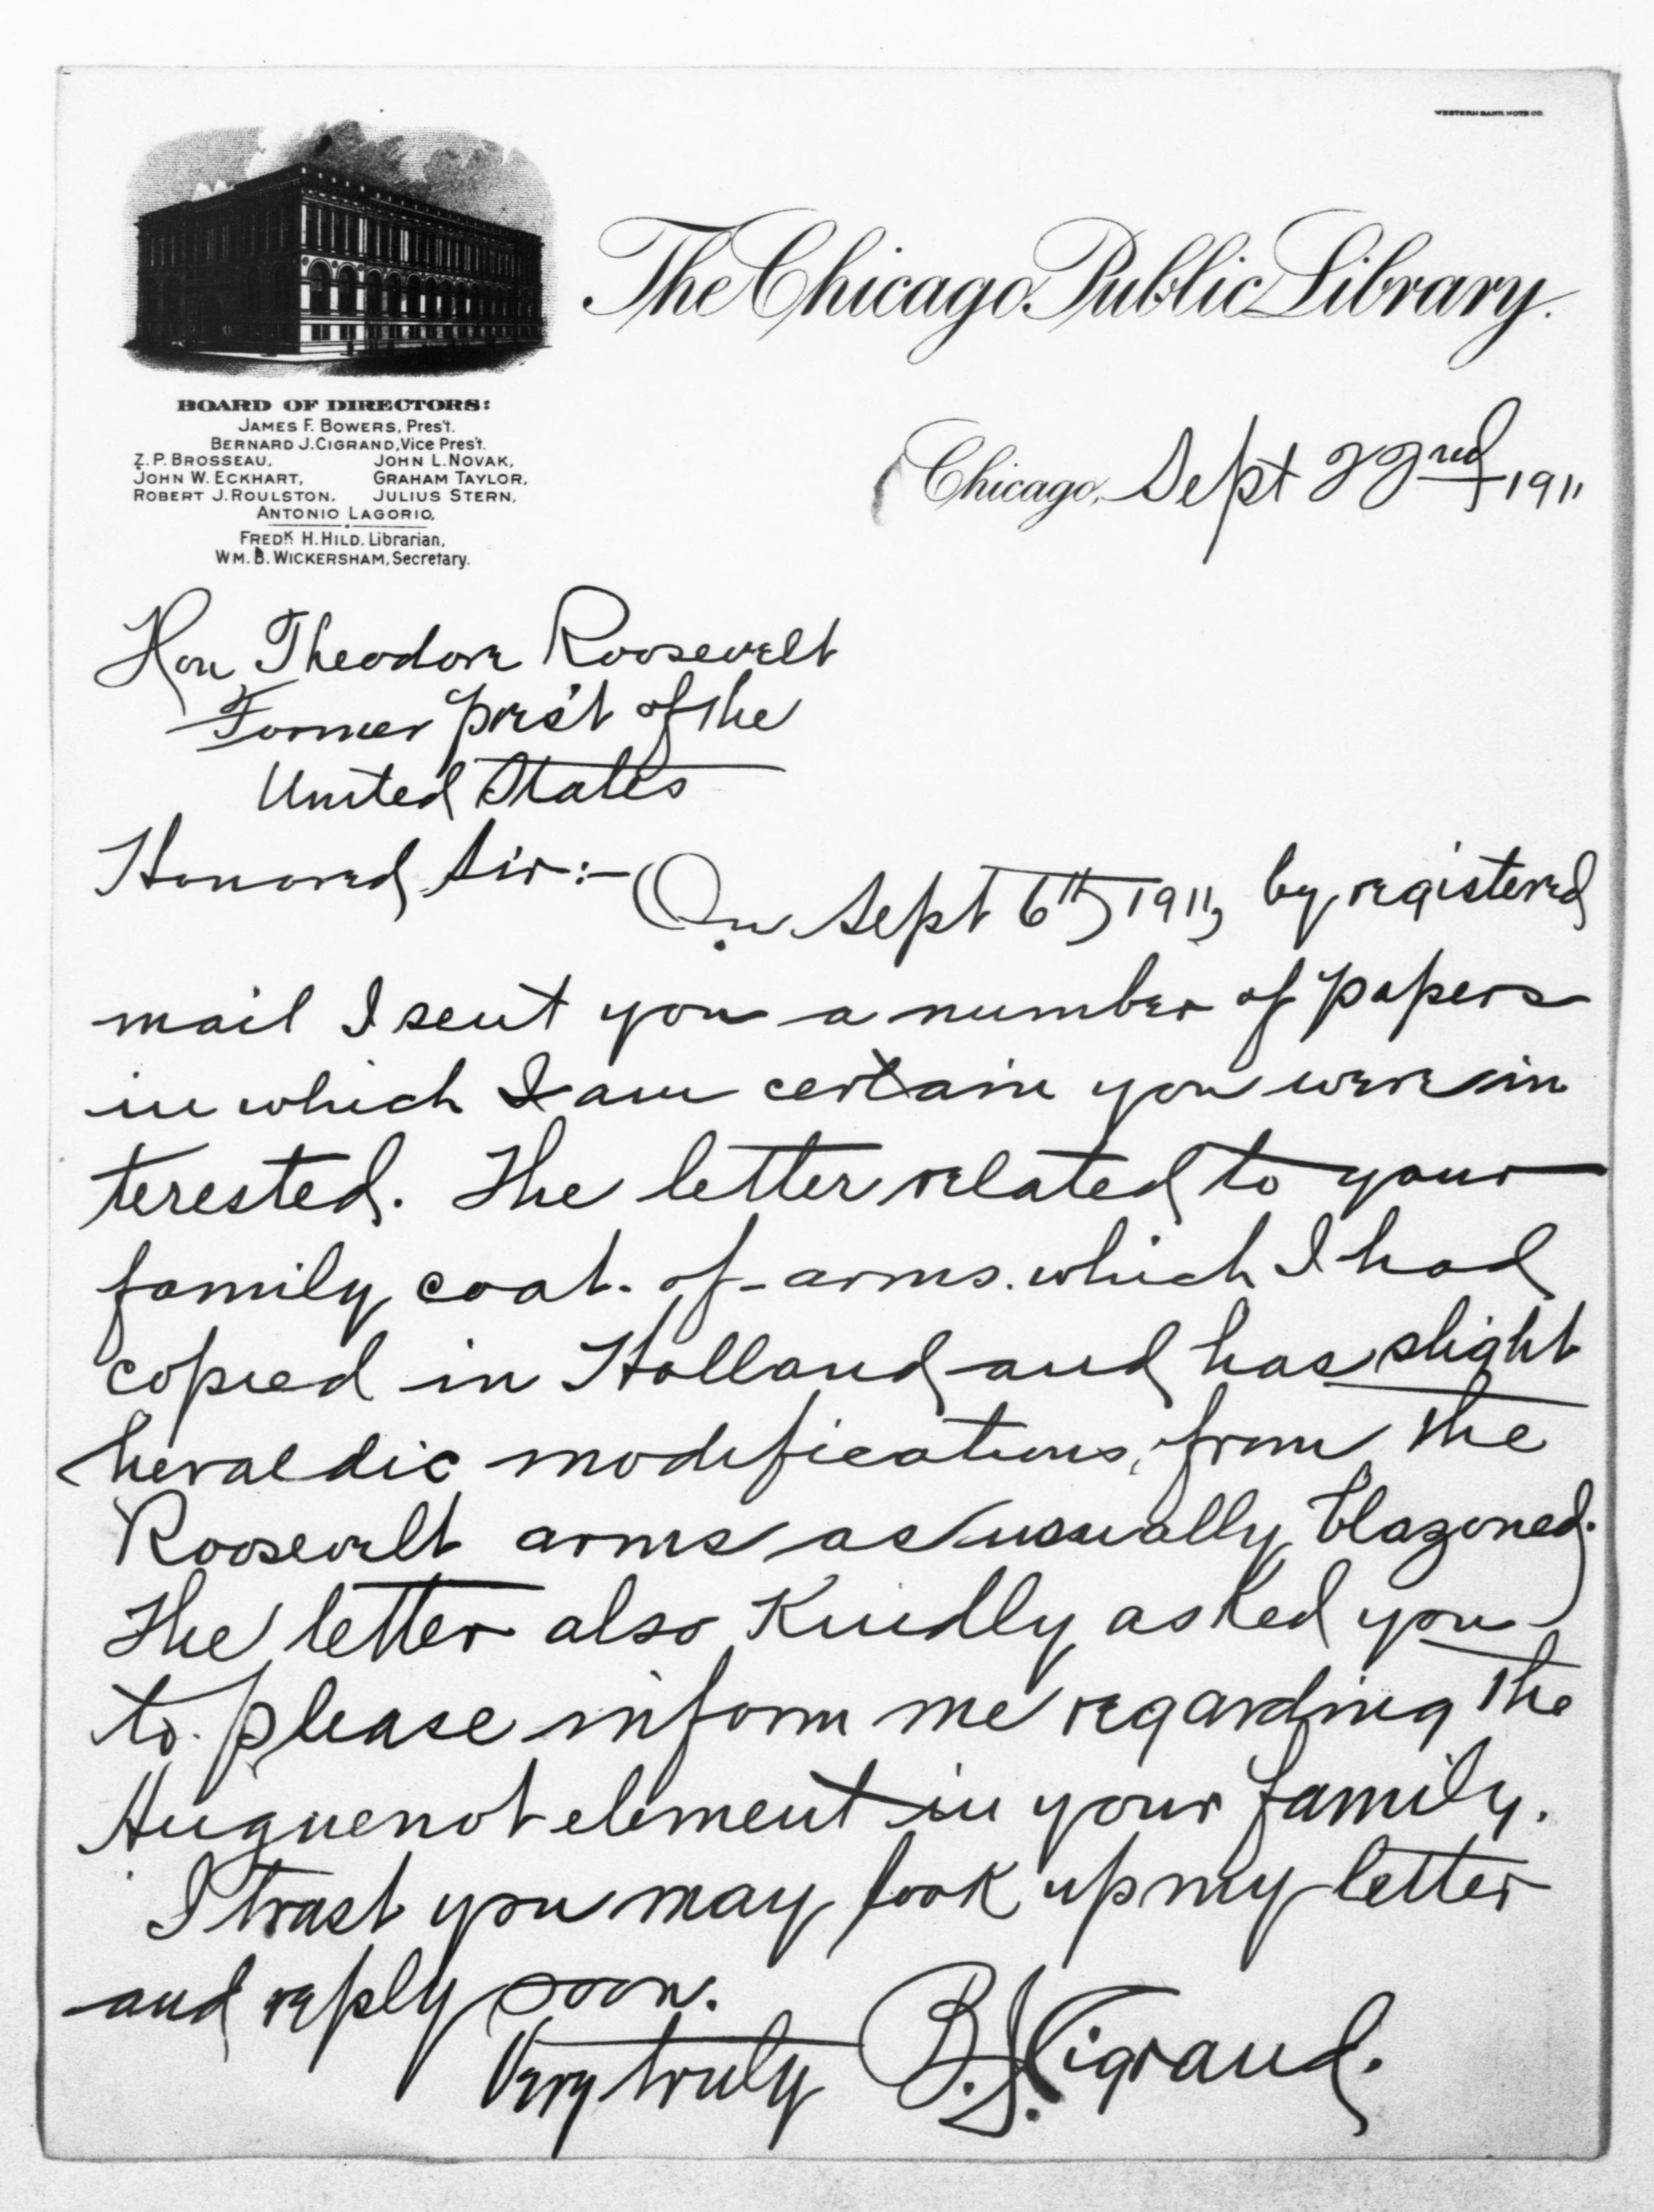 WESTERN BANK NOTE CO.
The Chicago Public Library.
BOARD OF DIRECTORS:
JAMES F. BOWERS, Pres't.
BERNARD J. CIGRAND, Vice Pres't.
Z. P. BROSSEAU, JOHN L. NOVAK,
JOHN W. ECKHART, GRAHAM TAYLOR,
ROBERT J. ROULSTON, JULIUS STERN,
ANTONIO LAGORIO,
FREDK H. HILD, Librarian,
WM. B. WICKERSHAM, Secretary.
Chicago, Sept 22nd 1911
Hon. Theodore Roosevelt
Former pres't of the
United States
Honored Sir:- On Sept 6th, 1911, by registered
mail I sent you a number of papers
in which I am certain you were in
terested. The letter related to your
family coat-of-arms which I had
copied in Holland and has slight
heraldic modifications, from the
Roosevelt arms as usually blazoned.
The letter also Kindly asked you
to please inform me regarding the
Huguenot element in your family.
I trust you may look up my letter
and reply soon.
Very truly B. J. Cigrand.